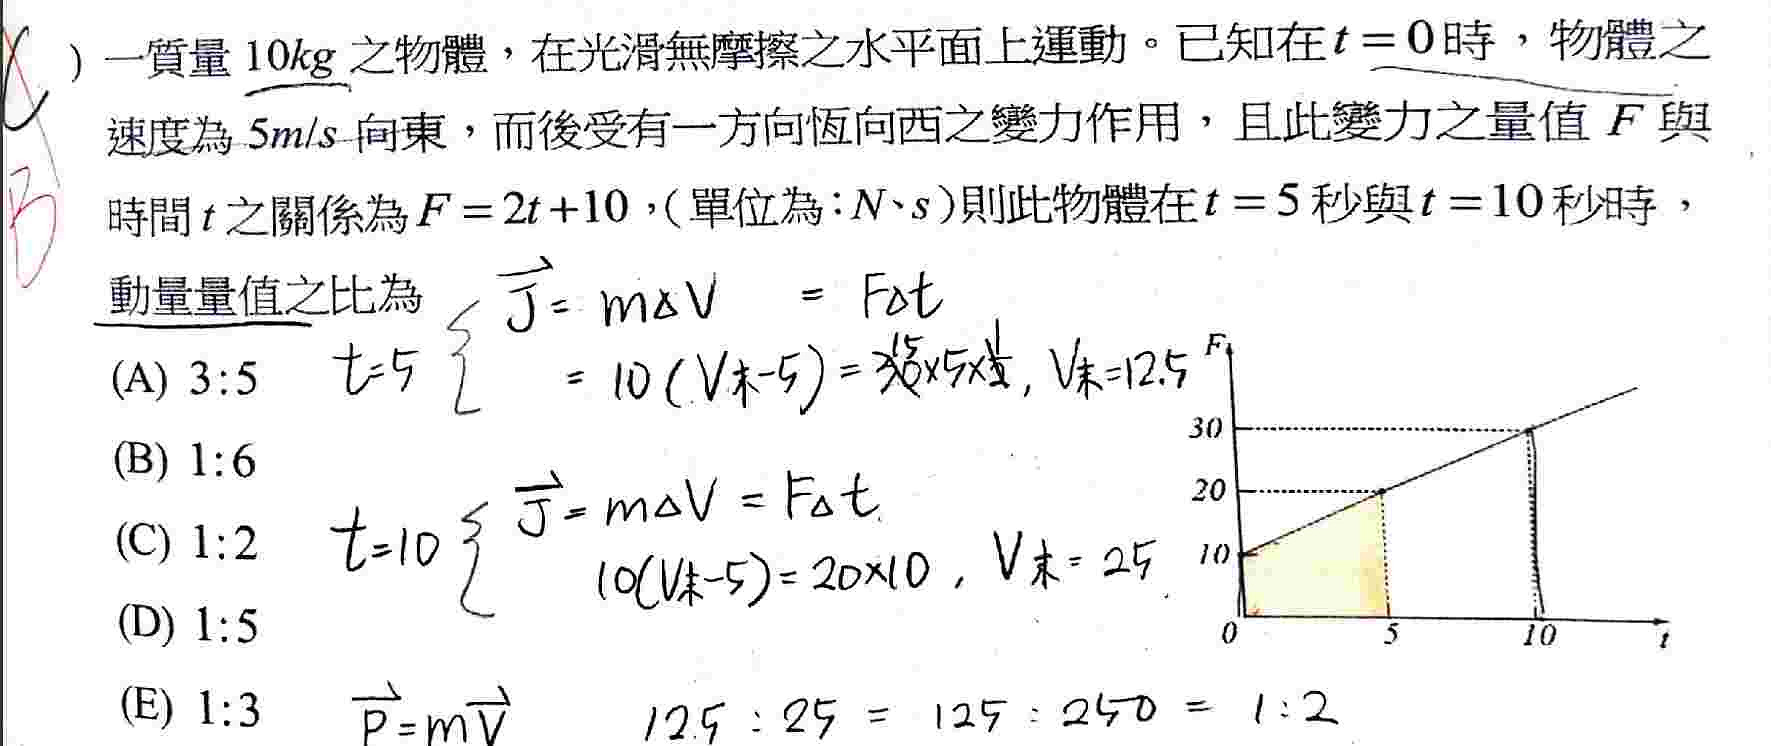 C
B
) 一質量 10kg 之物體，在光滑無摩擦之水平面上運動。已知在 t = 0 時，物體之
速度為 5m/s 向東，而後受有一方向恆向西之變力作用，且此變力之量值 F 與
時間 t 之關係為 F = 2t +10，( 單位為：N、s ) 則此物體在 t = 5 秒與 t = 10 秒時，
動量量值之比為
J = m△V = F△t
(A) 3:5
t=5
= 10 (V末-5) = 15×5×, V末=12.5
(B) 1:6
J = m△V = F△t
(C) 1:2
t=10
10(V末-5) = 20×10 , V末 = 25
(D) 1:5
(E) 1:3
P = mV
12.5 : 25 = 125 : 250 = 1:2
F
30
20
10
0
5
10
t